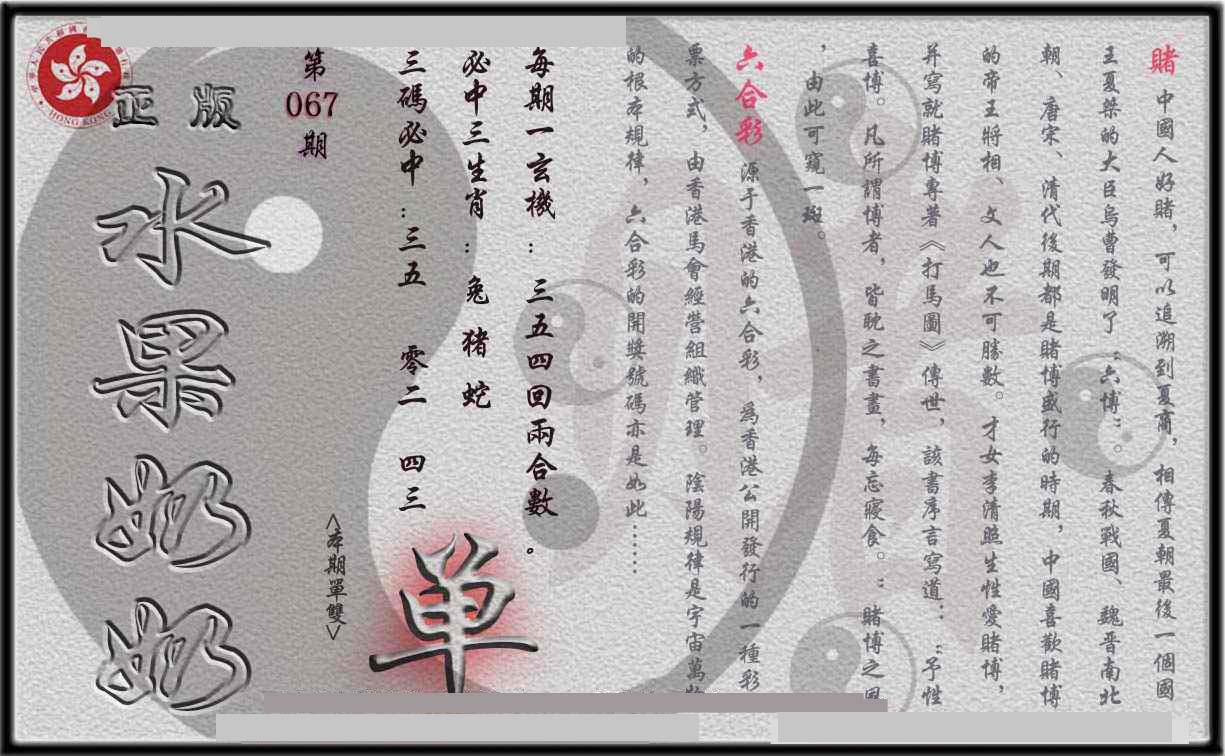 賭 中國人好賭，可以追溯到夏商，相傳夏朝最後一個國
王夏桀的大臣烏曹發明了“六博” 春秋戰國、魏晋南北
朝、唐宋、清代後期都是賭博盛行的時期，中國喜歡賭博
的帝王將相、文人也不可勝數。才女李清照生性愛賭博，
并寫就賭博專著《打馬圖》傳世，該書序言寫道：“予性
喜博。凡所謂博者，皆耽之書畫，每忘寢食。”賭博之風
，由此可窺一斑。
六合彩 源于香港的六合彩，為香港公開發行的一種彩
票方式，由香港馬會經營組織管理。陰陽規律是宇宙萬物
的根本規律，六合彩的開獎號碼亦是如此……
每期一玄機：三五四回兩合數。
必中三生肖：兔 猪 蛇
三碼必中：三五 零二 四三
單
<本期單雙>
第067期
正版
水果奶奶
HONG KONG